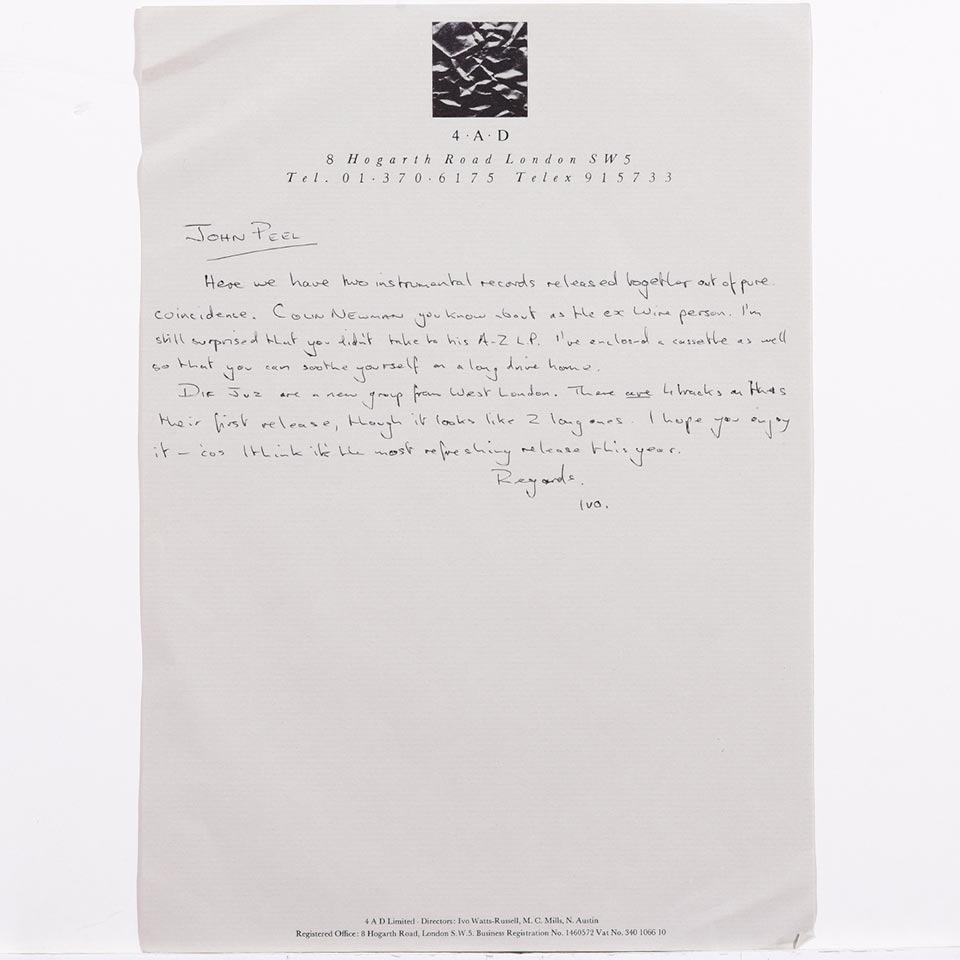 4·A·D
8 Hogarth Road London SW5
Tel. 01·370·6175 Telex 915733
JOHN PEEL
Here we have two instrumental records released together out of pure
coincidence. COLIN NEWMAN you know about as the ex Wire person. I'm
still surprised that you didn't take to his A-Z LP. I've enclosed a cassette as well
so that you can soothe yourself on a long drive home.
DIF JUZ are a new group from West London. There are 4 tracks on this
their first release, though it looks like 2 long ones. I hope you enjoy
it – 'cos I think it's the most refreshing release this year.
Regards.
Ivo.
4 A D Limited · Directors: Ivo Watts-Russell, M. C. Mills, N. Austin
Registered Office: 8 Hogarth Road, London S.W.5. Business Registration No. 1460572 Vat No. 340 1066 10